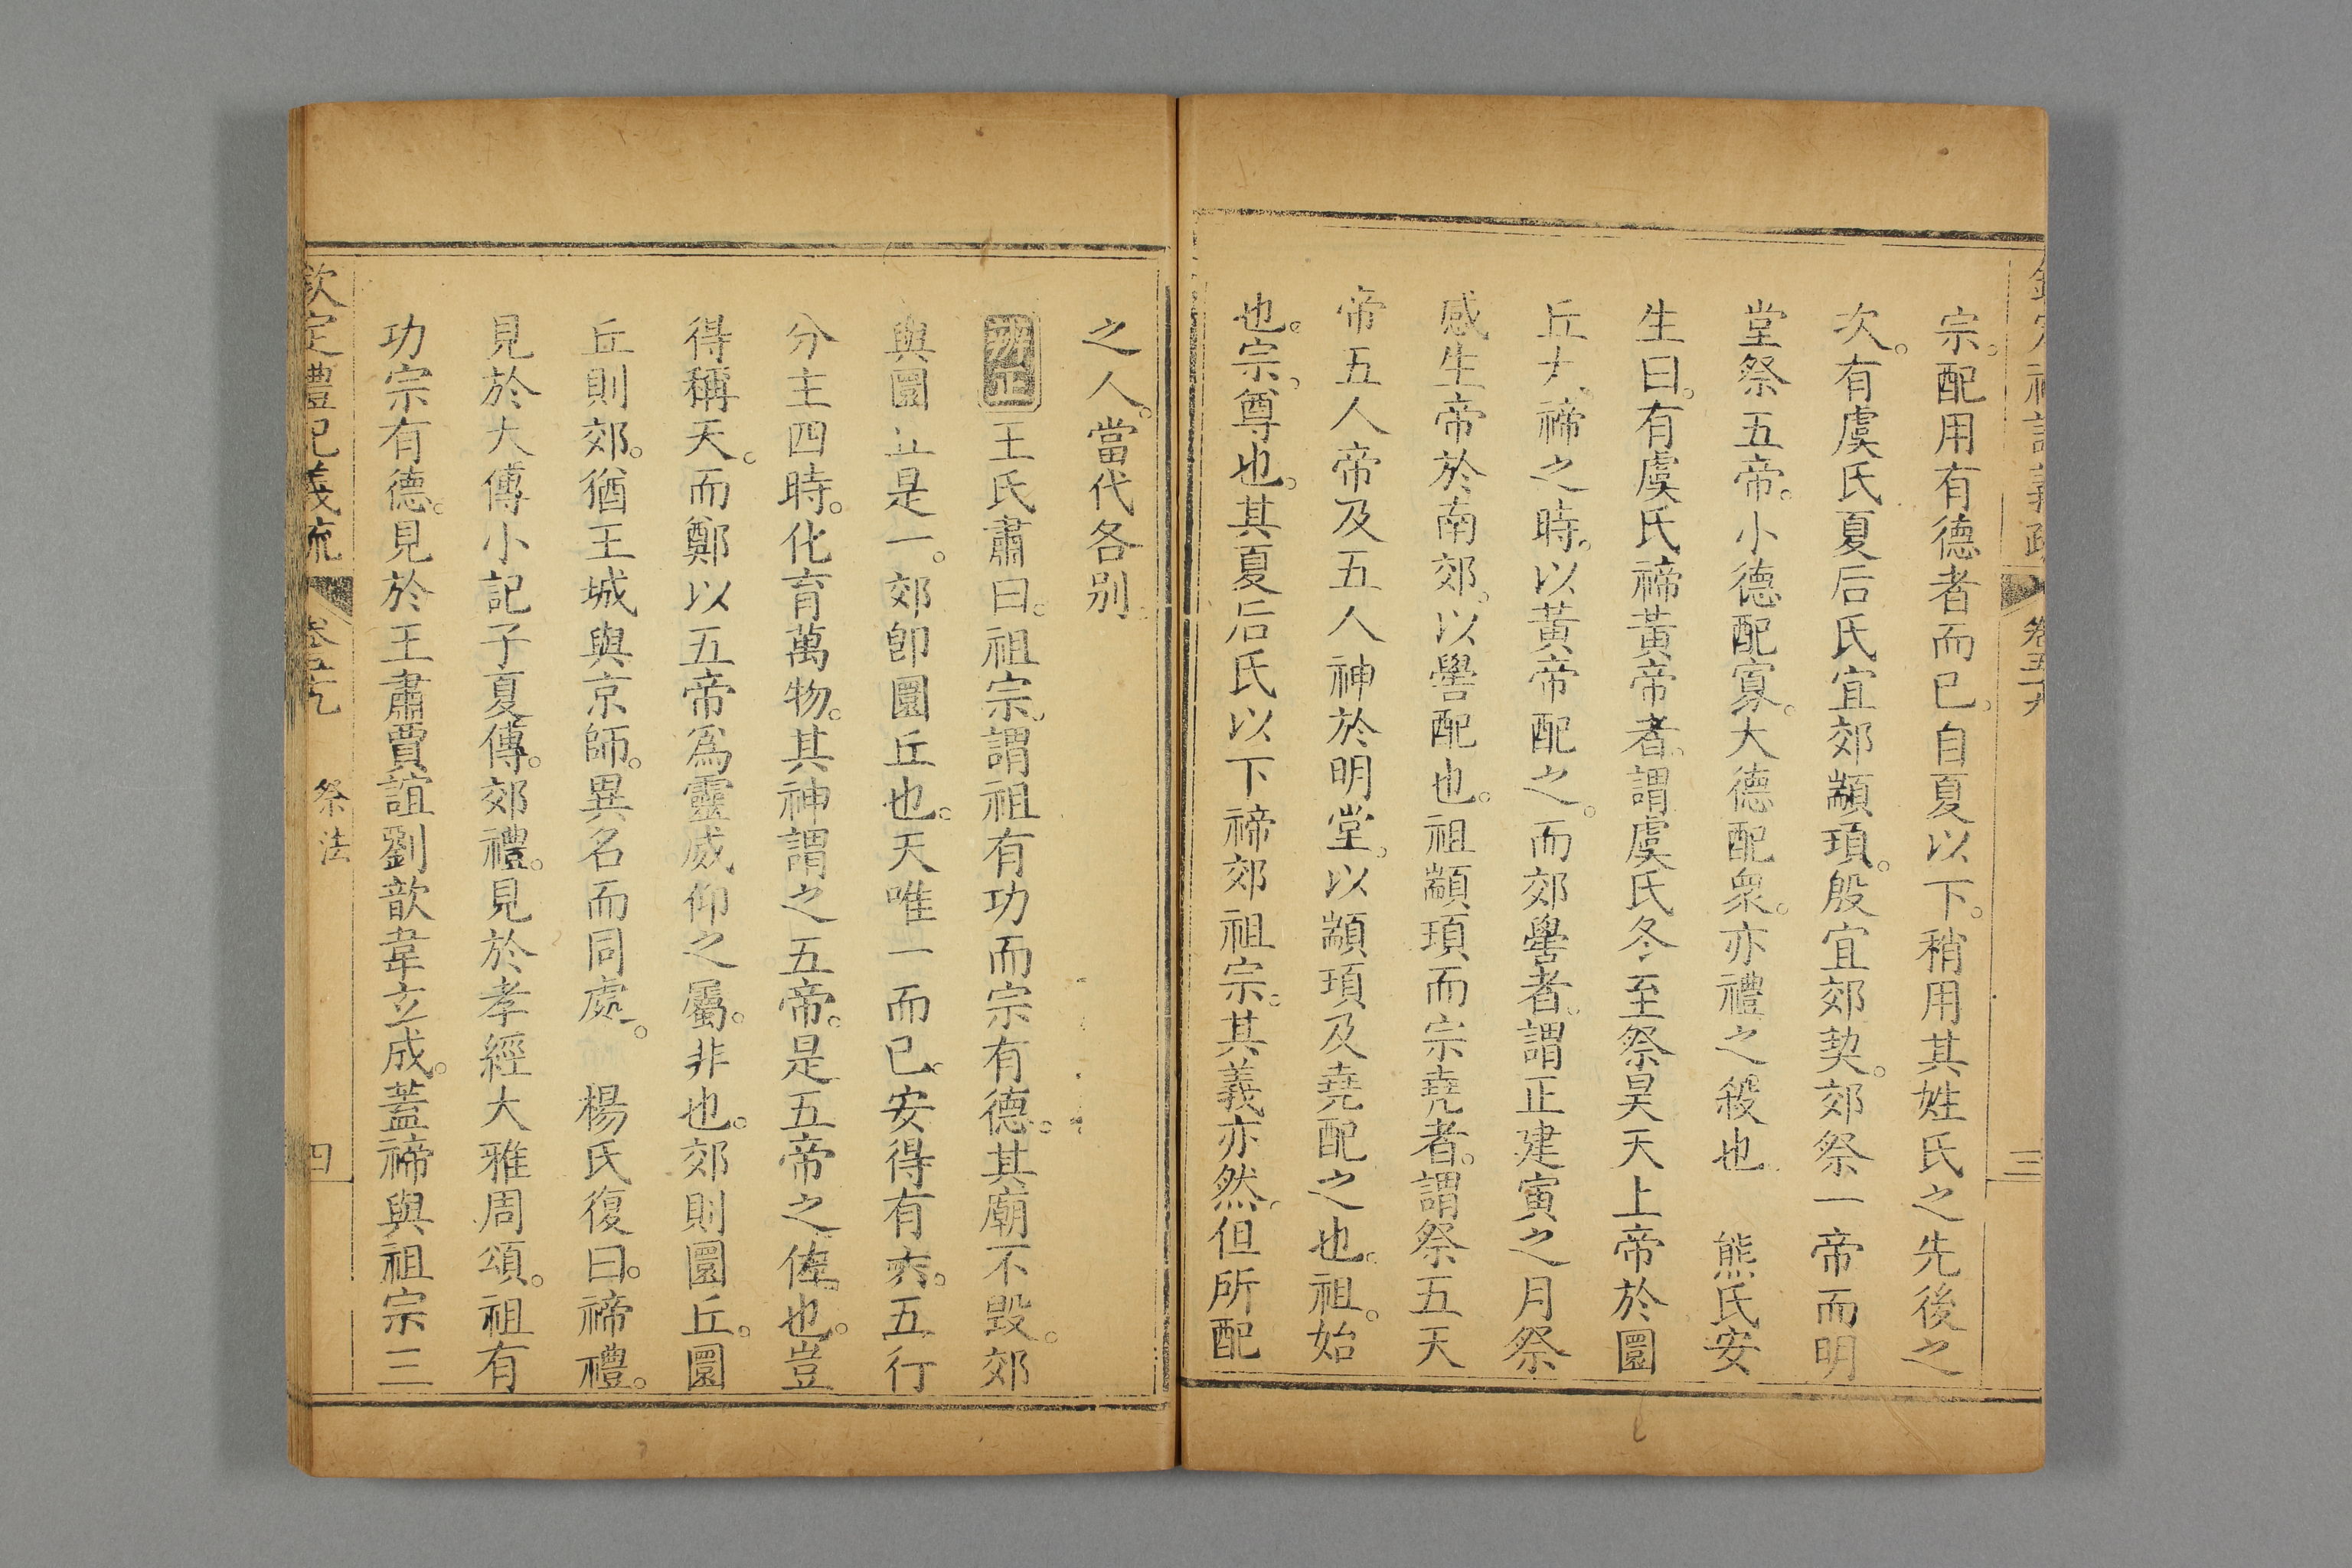 欽定禮記義疏 卷五十九 三
宗。配用有德者而已。自夏以下。稍用其姓氏之先後之
次。有虞氏夏后氏宜郊顓頊。殷宜郊契。郊祭一帝而明
堂祭五帝。小德配寡。大德配衆。亦禮之殺也 熊氏安
生曰。有虞氏禘黃帝者。謂虞氏冬至祭昊天上帝於圜
丘大。禘之時。以黃帝配之。而郊嚳者。謂正建寅之月祭
感生帝於南郊。以嚳配也。祖顓頊而宗堯者。謂祭五天
帝五人帝及五人神於明堂。以顓頊及堯配之也。祖。始
也。宗。尊也。其夏后氏以下禘郊祖宗。其義亦然。但所配
之人。當代各別
王氏肅曰。祖宗。謂祖有功而宗有德。其廟不毀。郊
與圜丘是一。郊卽圜丘也。天唯一而已。安得有六。五行
分主四時。化育萬物。其神謂之五帝。是五帝之佐也。豈
得稱天。而鄭以五帝爲靈威仰之屬。非也。郊則圜丘。圜
丘則郊。猶王城與京師。異名而同處。 楊氏復曰。禘禮。
見於大傳小記子夏傳。郊禮。見於孝經大雅周頌。祖有
功宗有德。見於王肅賈誼劉歆韋玄成。蓋禘與祖宗三
欽定禮記義疏 卷五十九 祭法 四